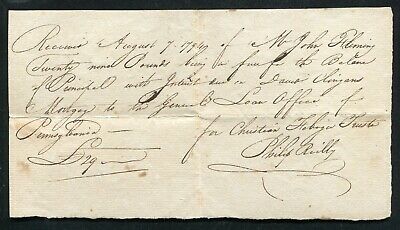 Received August 7. 1794 of Mr. John Fleming
Twenty nine Pounds being in full for the Balance
of Principal with Interest due on David
Mortgage to the General Loan Office of
Pennsylvania —
for Christian Febiger Trustee
£29
Philip Reilly